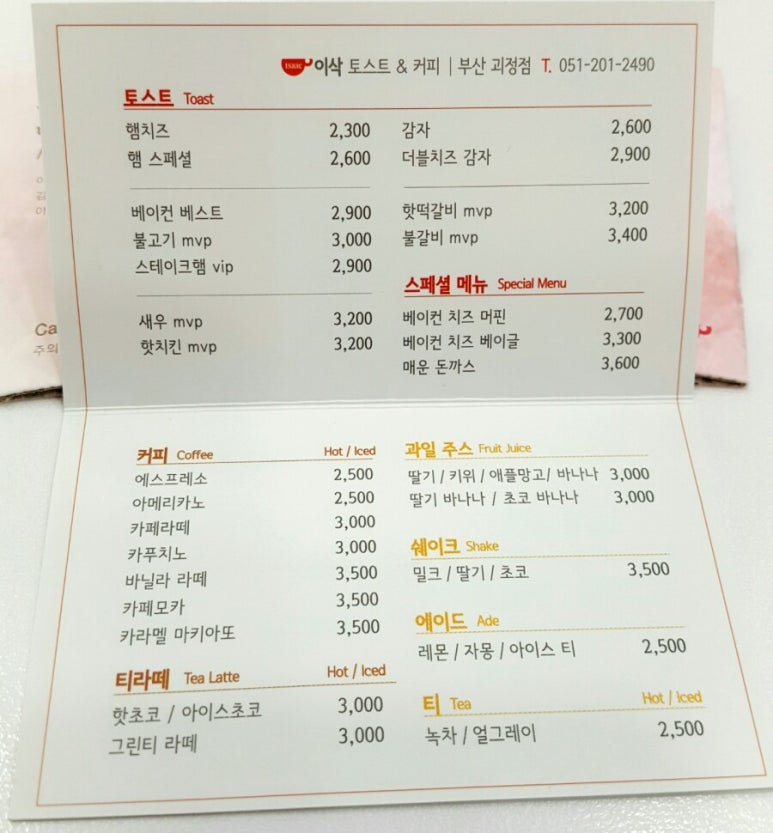 ISAAC 이삭 토스트 & 커피 | 부산 괴정점 T. 051-201-2490
토스트 Toast
햄치즈 2,300
햄 스페셜 2,600
베이컨 베스트 2,900
불고기 mvp 3,000
스테이크햄 vip 2,900
새우 mvp 3,200
핫치킨 mvp 3,200
감자 2,600
더블치즈 감자 2,900
핫떡갈비 mvp 3,200
불갈비 mvp 3,400
스페셜 메뉴 Special Menu
베이컨 치즈 머핀 2,700
베이컨 치즈 베이글 3,300
매운 돈까스 3,600
커피 Coffee Hot / Iced
에스프레소 2,500
아메리카노 2,500
카페라떼 3,000
카푸치노 3,000
바닐라 라떼 3,500
카페모카 3,500
카라멜 마키아또 3,500
티라떼 Tea Latte Hot / Iced
핫초코 / 아이스초코 3,000
그린티 라떼 3,000
과일 주스 Fruit Juice
딸기 / 키위 / 애플망고 / 바나나 3,000
딸기 바나나 / 초코 바나나 3,000
쉐이크 Shake
밀크 / 딸기 / 초코 3,500
에이드 Ade
레몬 / 자몽 / 아이스 티 2,500
티 Tea Hot / Iced
녹차 / 얼그레이 2,500
Ca
주의